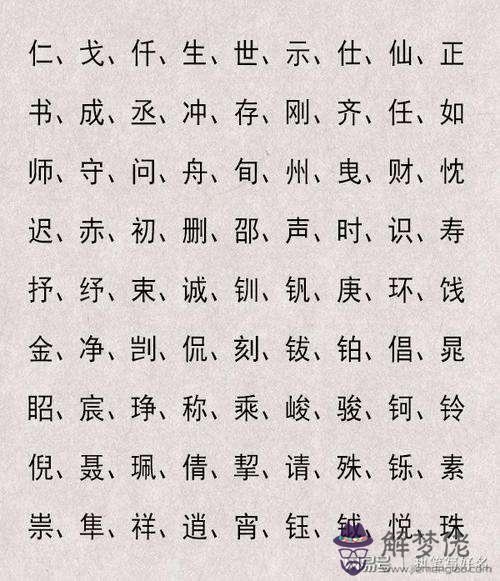 仁、戈、仟、生、世、示、仕、仙、正
书、成、丞、冲、存、刚、齐、任、如
师、守、问、舟、旬、州、曳、财、忱
迟、赤、初、删、邵、声、时、识、寿
抒、纾、束、诚、钏、钒、庚、环、饯
金、净、剀、侃、刻、钹、铂、倡、晁
眧、宸、琤、称、乘、峻、骏、钶、铃
倪、聂、珮、倩、挈、请、殊、铄、素
祟、隼、祥、逍、宵、钰、钺、悦、珠
解梦佬
www.jiemanglao.com